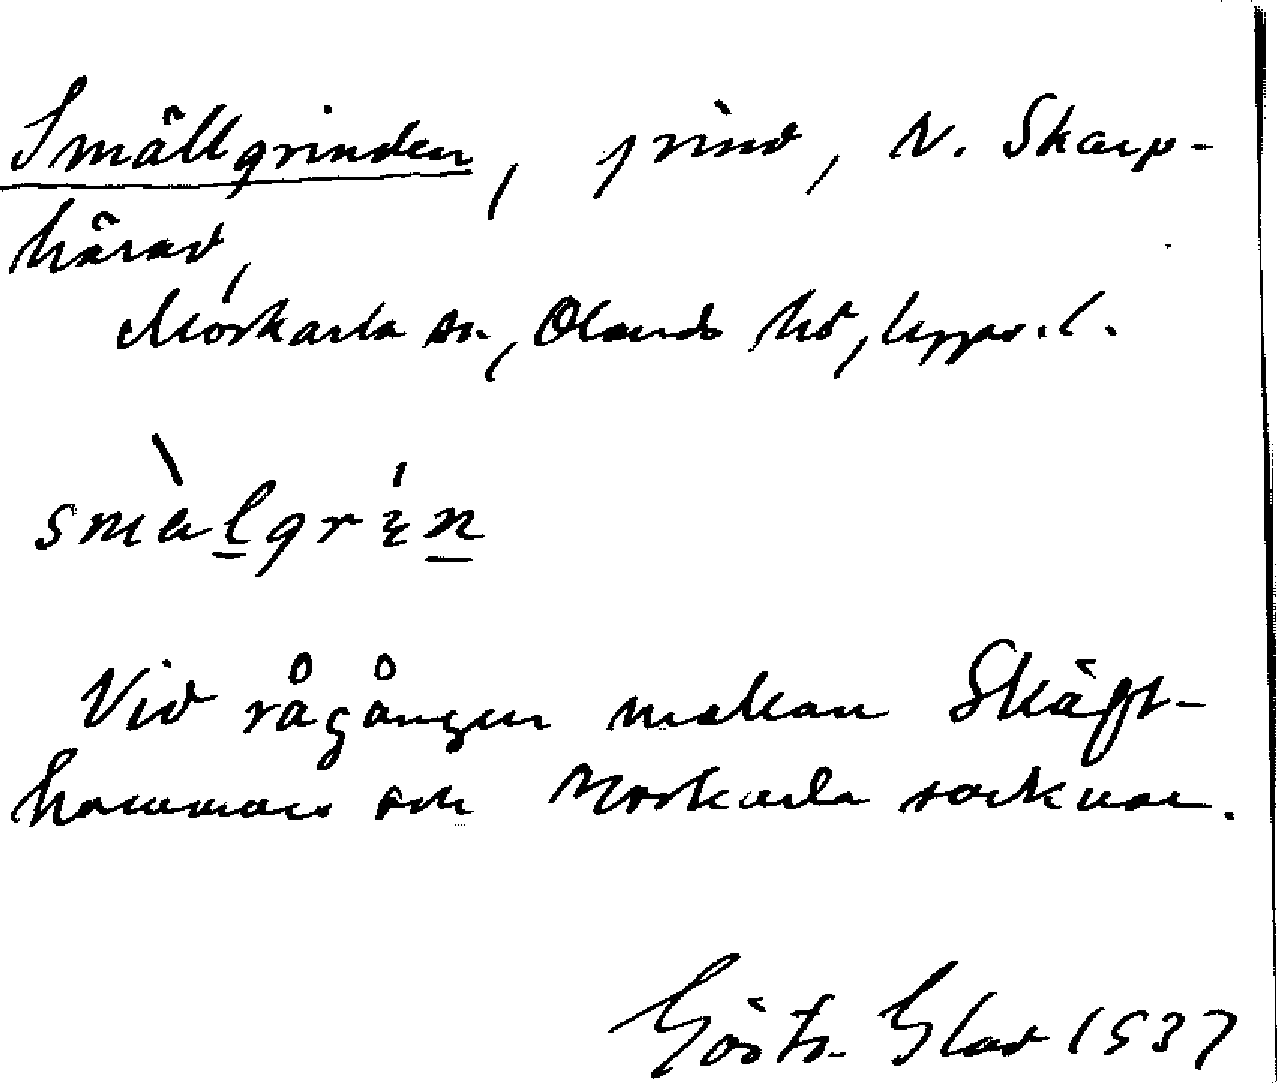 Smällgrinden, grind, N. Skarp-
härad,
Morkarla sn, Olands hd, Upps. l.
smàlgrín
Vid rågången mellan Skäft-
hammars och Morkarla socknar.
Gösta Glad 1937